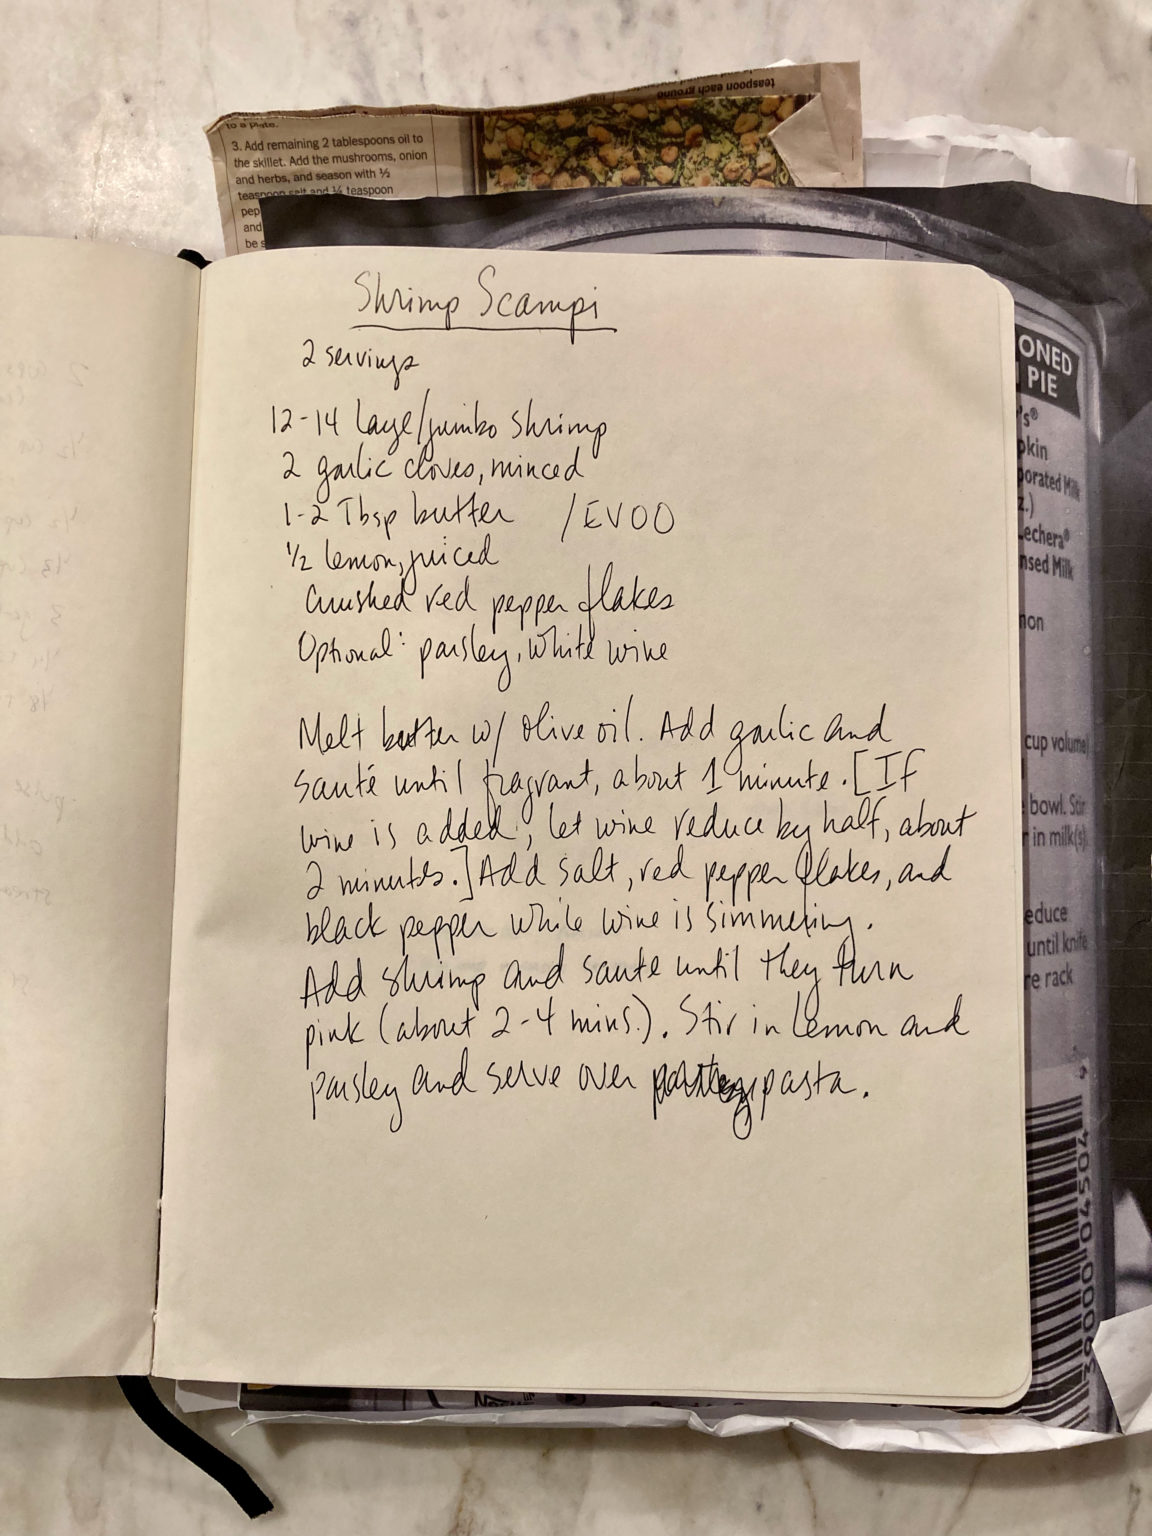 teaspoon each ground
to a plate.
3. Add remaining 2 tablespoons oil to
the skillet. Add the mushrooms, onion
and herbs, and season with ½
teaspoon salt and ¼ teaspoon
pep
and
be s
Shrimp Scampi
2 servings
12-14 large/jumbo shrimp
2 garlic cloves, minced
1-2 Tbsp butter /EVOO
½ lemon, juiced
Crushed red pepper flakes
Optional: parsley, white wine
Melt butter w/ olive oil. Add garlic and
sauté until fragrant, about 1 minute. [If
wine is added, let wine reduce by half, about
2 minutes.] Add salt, red pepper flakes, and
black pepper while wine is simmering.
Add shrimp and saute until they turn
pink (about 2-4 mins.). Stir in lemon and
parsley and serve over pasta.
ONED
PIE
's®
pkin
porated Milk
z.)
Lechera®
nsed Milk
non
cup volume
bowl. Stir
in milk(s)
educe
until knife
re rack
39000 04504